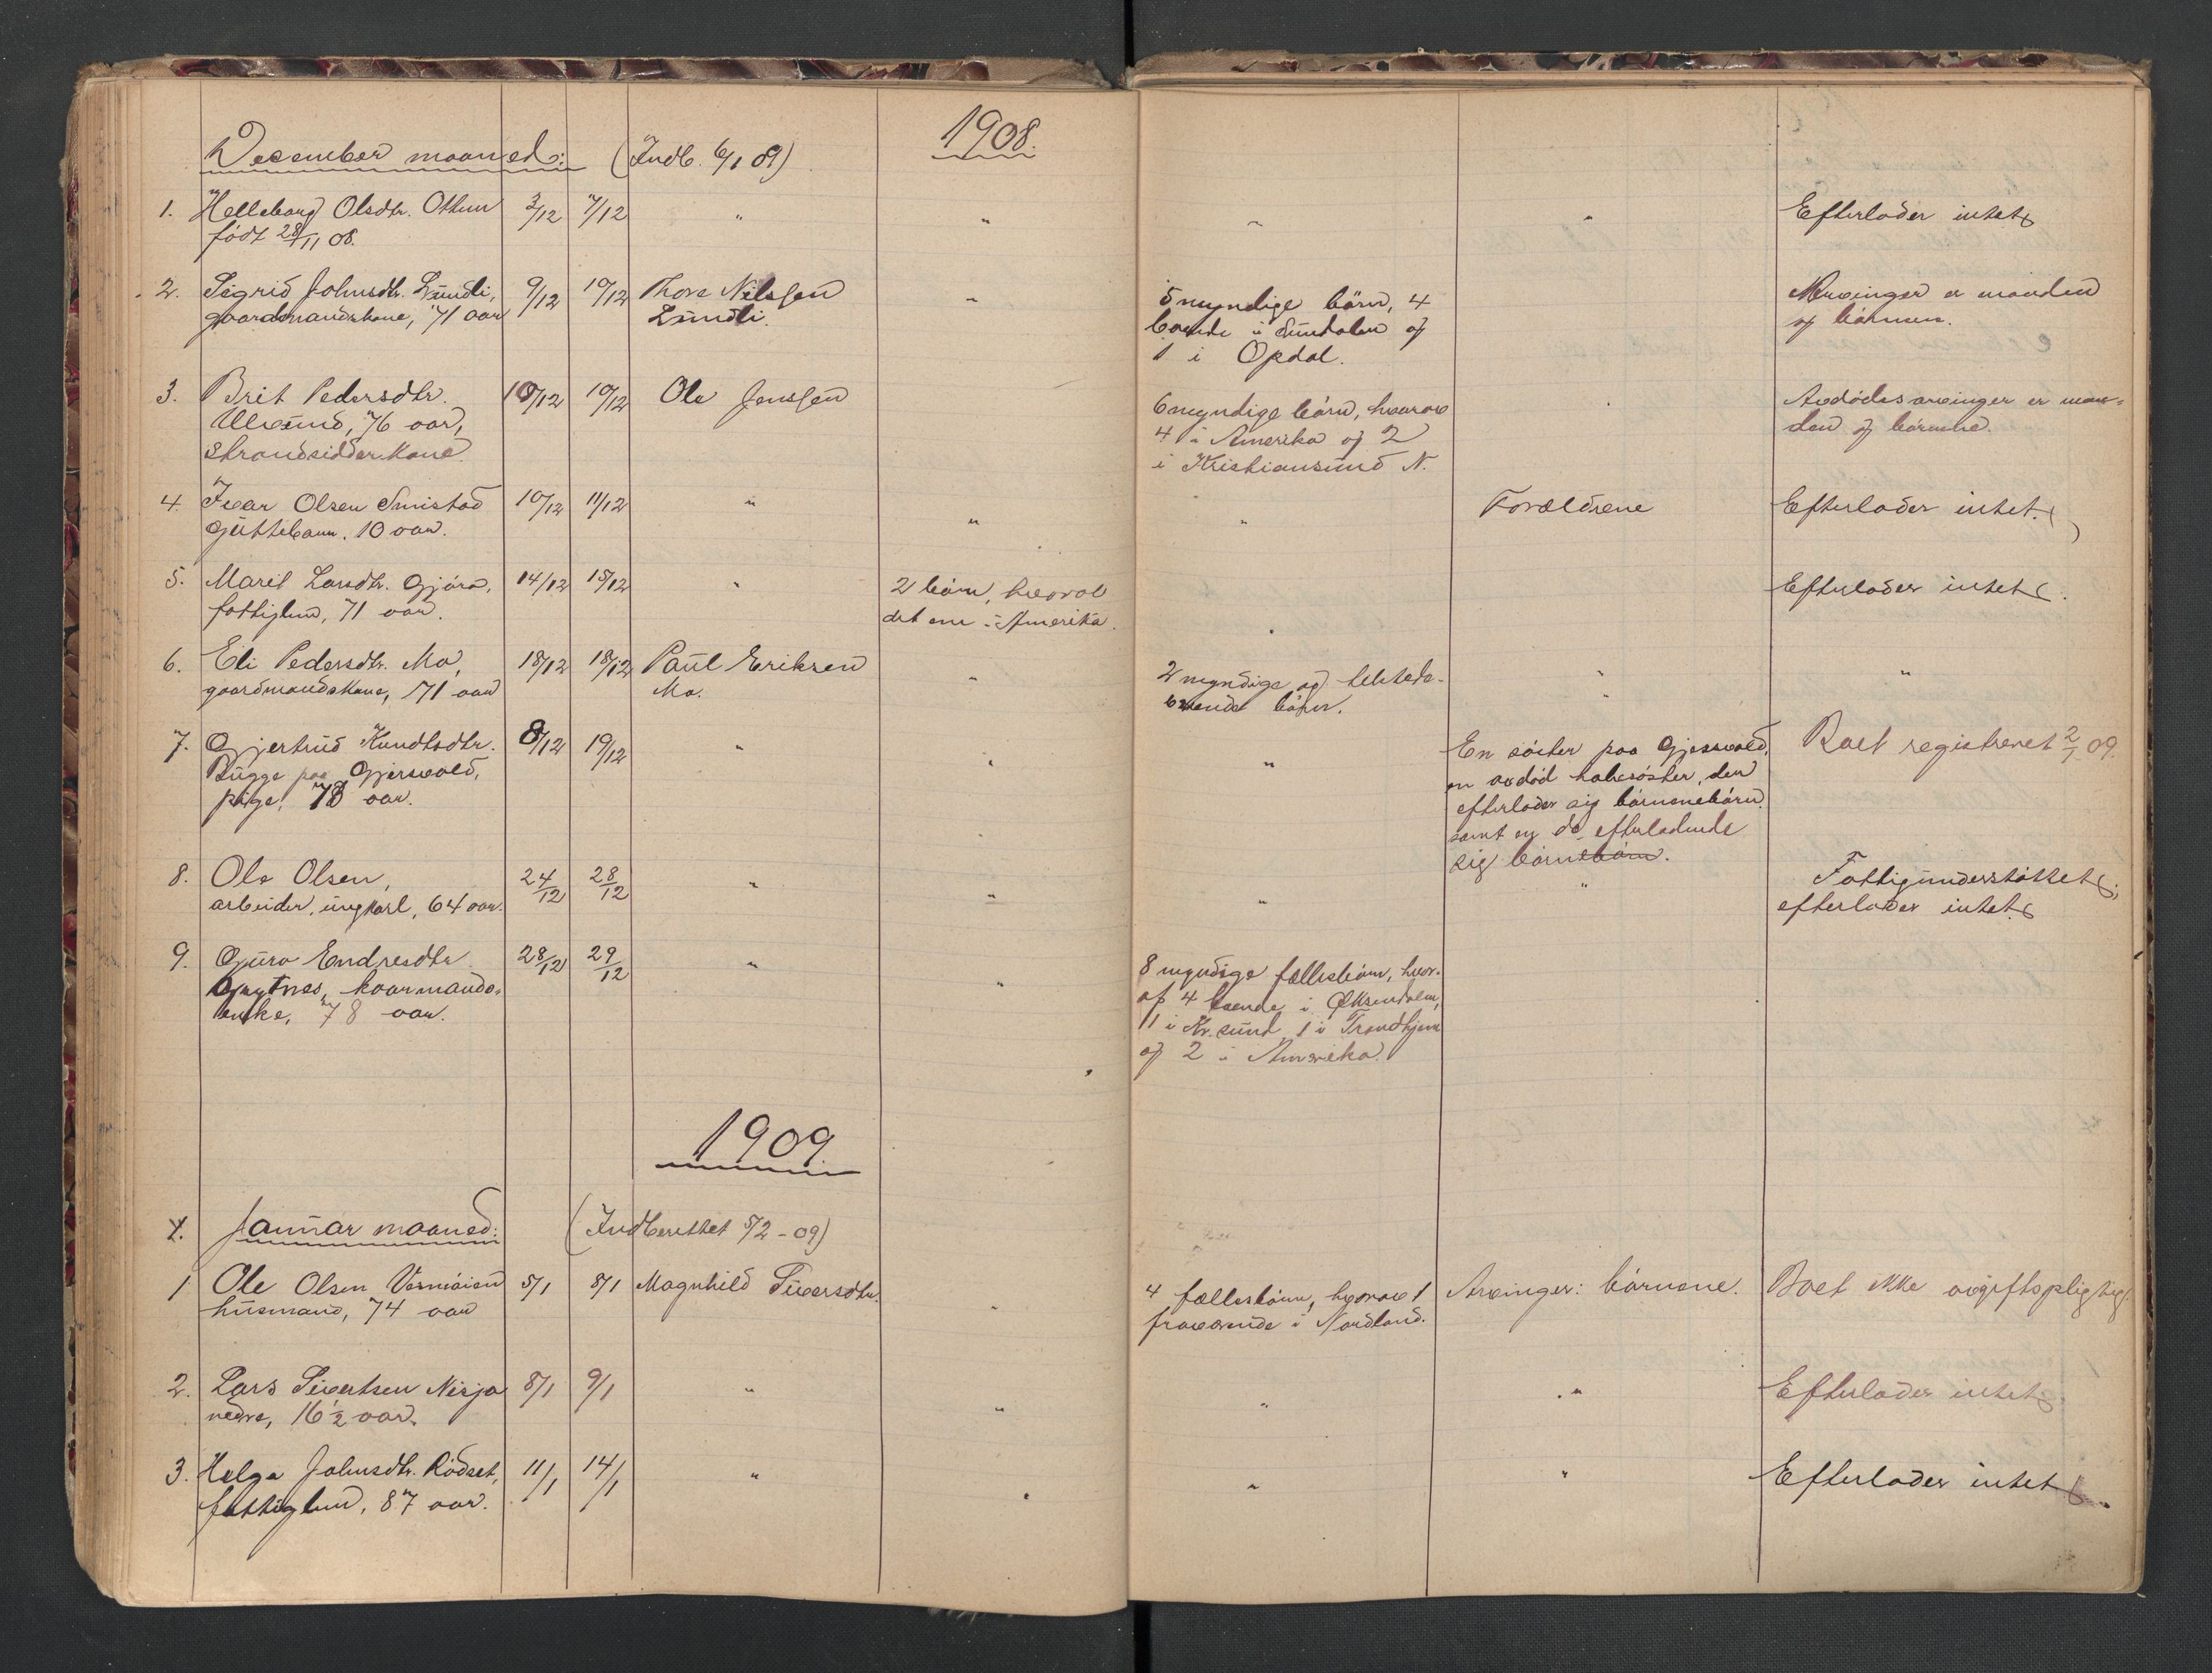 1908.
December maaned: (Indb. 6/1 09)
1. Helleborg Olsdtr. Ottem 3/12 7/12 " " " " Efterlader intet
født 28/11 08.
2. Sigrid Johnsdtr. Lundli, 9/12 10/12 Thore Nilssen " 5 myndige børn, 4 Arvinger er manden
gaardmandskone, 71 aar Lundli. boende i Sundalen og og børnene.
1 i Opdal.
3. Brit Pedersdtr. 10/12 10/12 Ole Jenssen 6 myndige børn, hvorav Avdødes arvinger er man-
Ulvund, 76 aar, 4 i Amerika og 2 den og børnene.
strandsidderkone. i Kristiansund N.
4. Ivar Olsen Smistad 10/12 11/12 " " " Forældrene Efterlader intet.
Guttebarn. 10 aar.
5. Marit Larsdtr. Gjøra, 14/12 15/12 " 2 børn, hvorav Efterlader intet.
fattiglem, 71 aar. det ene i Amerika.
6. Eli Pedersdtr. Mo, 18/12 18/12 Paul Eriksen " 2 myndige og " "
gaardmandskone, 71 aar Mo. børn.
7. Gjertrud Knudtsdtr. 8/12 19/12 " " " En søster paa Gjersvold, Boet registreret 2/1 09.
Bugge paa Gjersvold, en avdød halvsøster, den
pige, 78 aar. efterlader sig børnenebørn
samt en do. efterladende
sig børnebørn.
8. Ole Olsen, 24/12 28/12 " " " " Fattigunderstøttet;
arbeider, ungkarl, 64 aar. efterlader intet
9. Guro Endresdtr. 28/12 29/12 " " 8 myndige fællesbørn, hvor-
Grytnes, kaarmands- af 4 boende i Øksendalen,
enke, 78 aar. 1 i Kr.sund, 1 i Trondhjem
og 2 i Amerika.
1909.
Januar maaned: (Indberettet 5/2 - 09)
1 Ole Olsen Vermøien 5/1 8/1 Magnhild Siversdtr. " 4 fællesbørn, hvorav 1 Arvinger: børnene. Boet ikke avgiftspligtig.
husmand, 74 aar fraværende i Nordland.
2. Lars Sivertsen Nisja 8/1 9/1 " " " " Efterlader intet
nedre, 16 1/2 aar.
3. Helga Johnsdtr. Rødset, 11/1 14/1 " " " " Efterlader intet.
fattiglem, 87 aar.